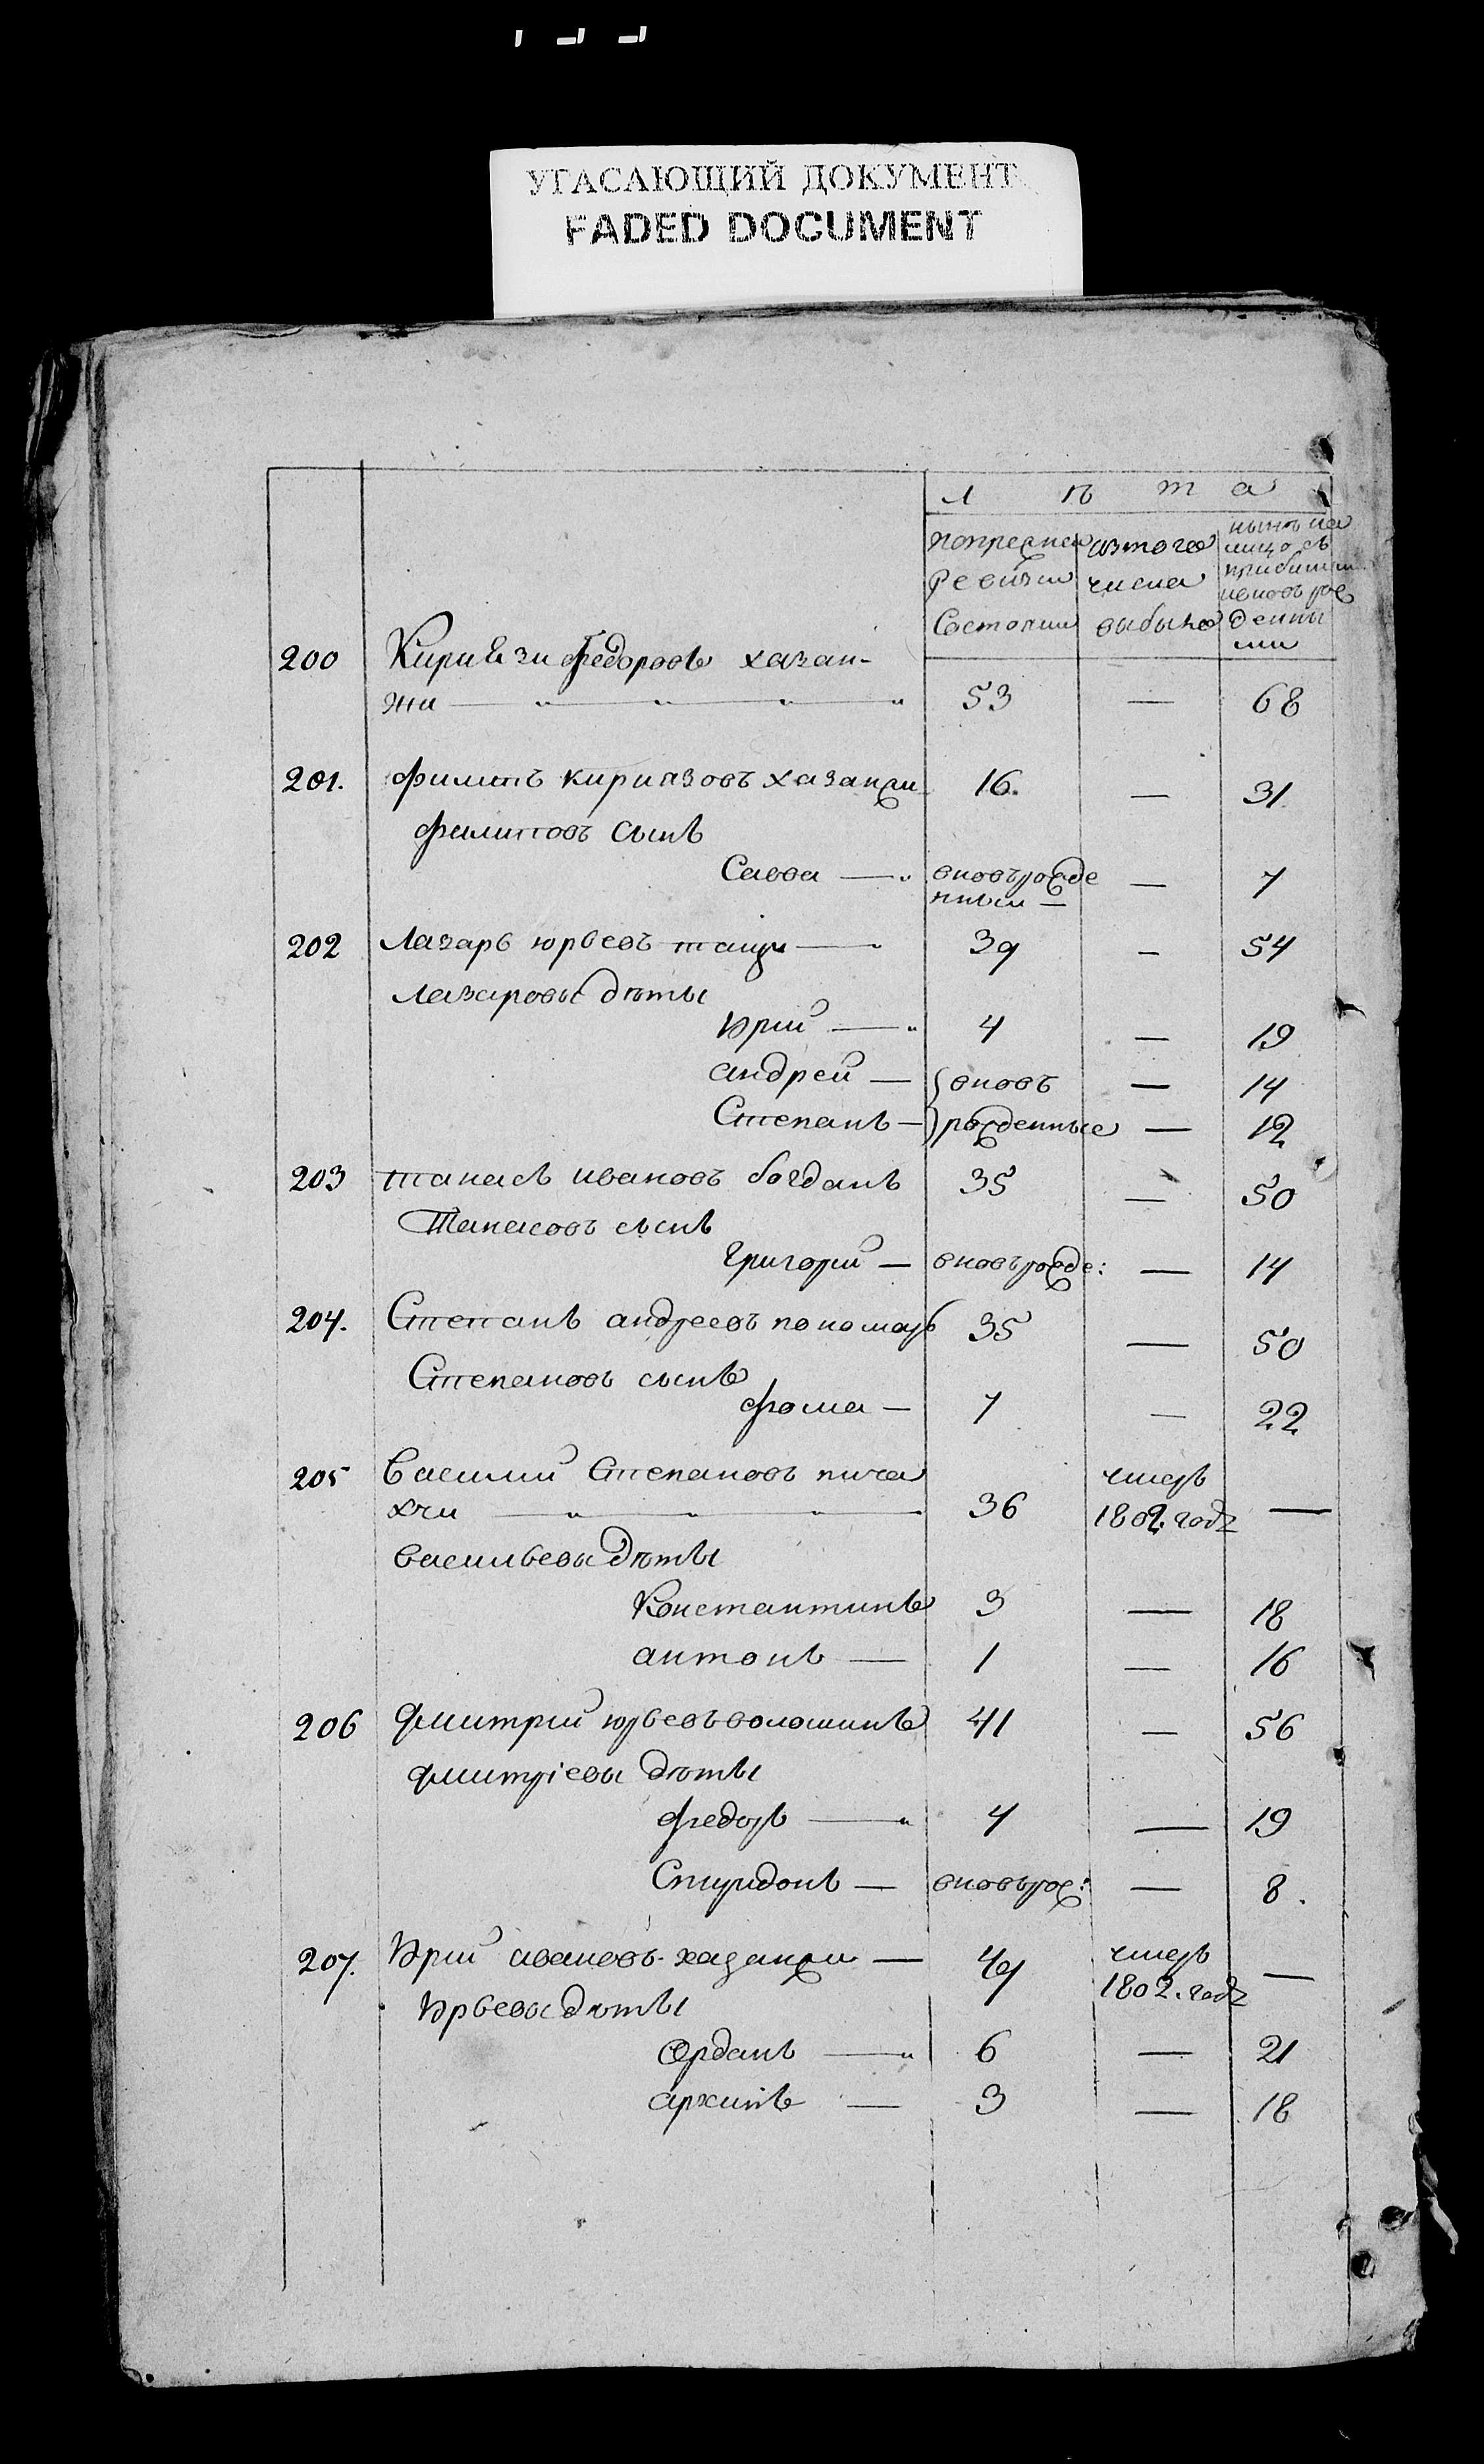 УГАСАЮЩИЙ ДОКУМЕНТ
FADED DOCUMENT
л ѣ т а
попрежней ревизии состояли
изтого числа выбыло
нынѣ на лицо съ прибылыми ивновь рожденными
200 Кириязи федоровъ хазан-
жи — 53 — 68
201. филипъ кириязовъ хазанжи 16. — 31
филиповъ сынъ
Савва — вновьрожде
нный — — 7
202 Лазарь юрьевъ тащи — 39 — 54
Лазаровы дѣти
юрий — 4 — 19
андрей — вновь — 14
Степанъ — рожденные — 12
203 танасъ ивановъ богданъ 35 — 50
Танасовъ сынъ
Григорий — вновьрожде: — 14
204. Степанъ андреевъ пономарь 35 — 50
Степановъ сынъ
фома — 7 — 22
205 Василий Степановъ пича
хчи — 36 умеръ 1802. годa —
васильевы дѣти
Константинъ 3 — 18
антонъ — 1 — 16
206 Дмитрий юрьевъ волошинъ 41 — 56
дмитріевы дѣти
федоръ — 4 — 19
Спиридонъ — вновьрож: — 8.
207. Юрий ивановъ хазанжи — 49 умеръ 1802. годa —
Юрьевы дѣти
Іорданъ — 6 — 21
архипъ — 3 — 18